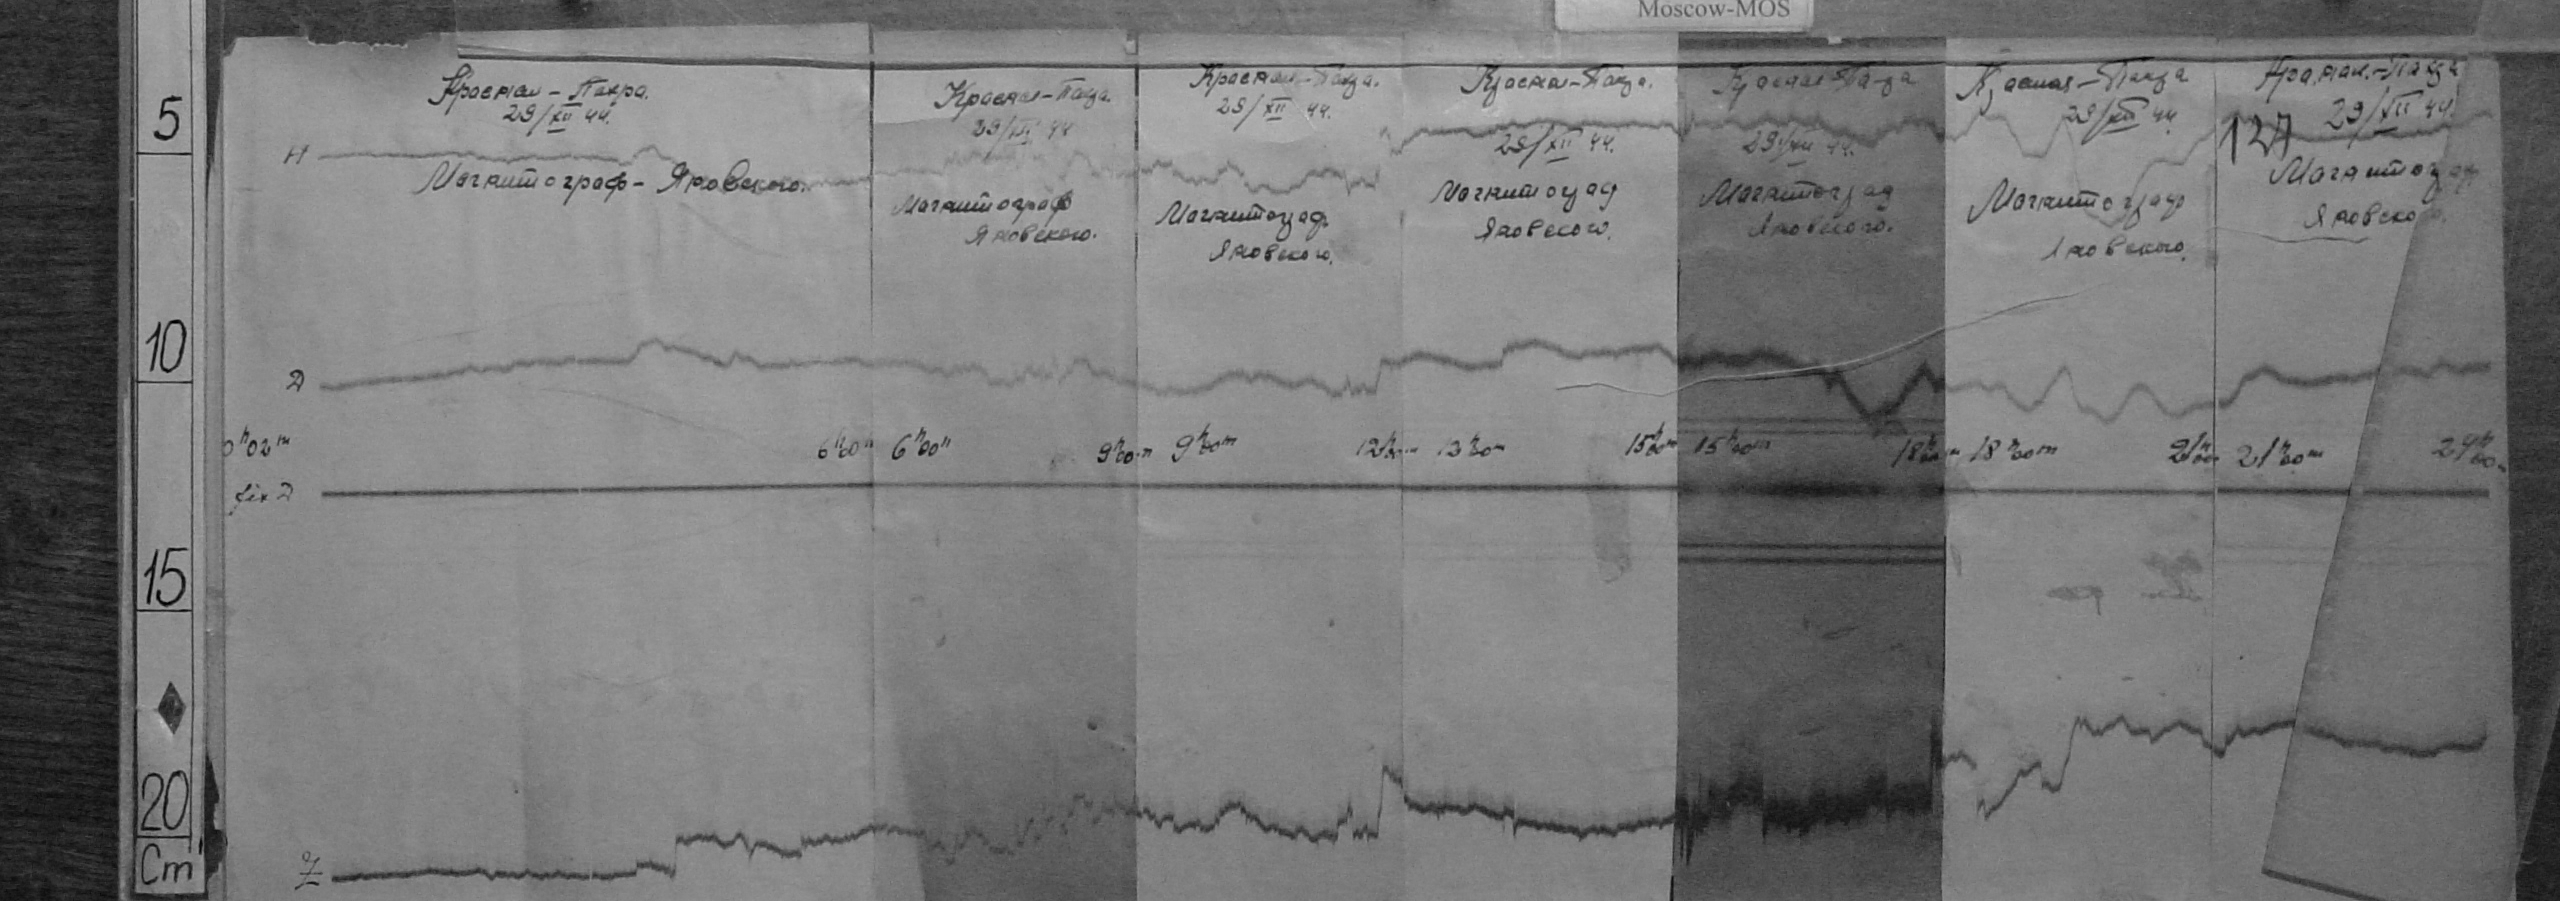 Moscow-MOS
5
10
15
20
Cm
Красная-Пахра.
29/XII 44.
Магнитограф-Яновского.
Красная-Пахра.
29/XII 44
Магнитограф
Яновского.
Красная-Пахра.
29/XII 44.
Магнитограф
Яновского.
Красная-Пахра.
29/XII 44.
Магнитограф
Яновского.
Красная-Пахра
29/XII 44.
Магнитограф
Яновского.
Красная-Пахра
29/XII 44
Магнитограф
Яновского.
Красная-Пахра
137
29/XII 44.
Магнитограф
Яновского.
H
D
0h02m
6h00m
6h00m
9h00m
9h00m
12h00m
12h00m
15h00m
15h00m
18h00m
18h00m
21h00m
21h00m
24h00m
fix D
Z